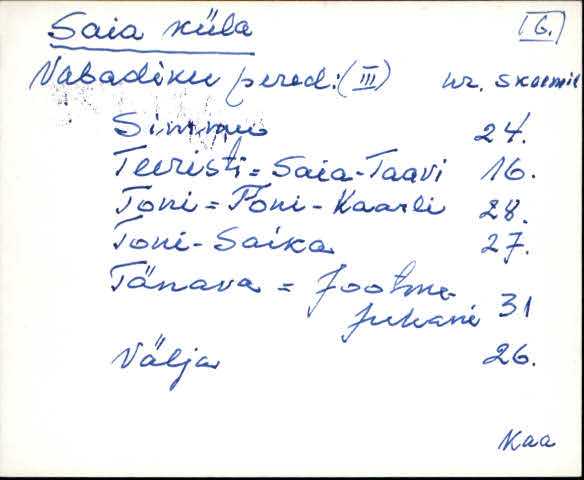 Saia küla
[6.]
Vabadiku pered: (III) nr. skeemil
Simmu 24.
Teeristi = Saia-Taavi 16.
Toni = Toni-Kaarli 28.
Toni-Saika 27.
Tänava = Jootme-
Juhani 31
Välja 26.
Kaa